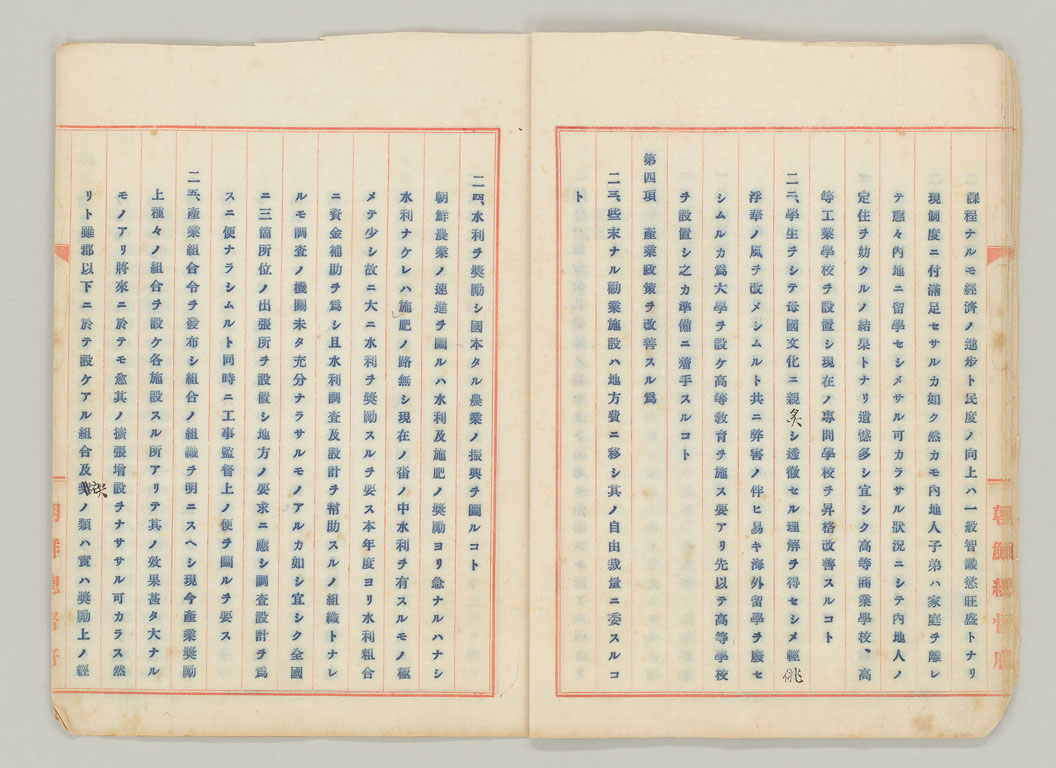 課程ナルモ經濟ノ進步ト民度ノ向上ハ一般智識慾旺盛トナリ
現制度ニ付滿足セサルカ如ク然カモ內地人子弟ハ家庭ヲ離レ
テ態々內地ニ留學セシメサル可カラサル狀況ニシテ內地人ノ
定住ヲ妨クルノ結果トナリ遺憾多シ宜シク高等商業學校、高
等工業學校ヲ設置シ現在ノ專門學校ヲ昇格改善スルコト
二二、學生ヲシテ母國文化ニ親炙シ透徹セル理解ヲ得セシメ輕佻
浮華ノ風ヲ改メシムルト共ニ弊害ノ伴ヒ易キ海外留學ヲ廢セ
シムルカ爲大學ヲ設ケ高等敎育ヲ施ス要アリ先以テ高等學校
ヲ設置シ之カ準備ニ着手スルコト
第四項 產業政策ヲ改善スル爲
二三、些末ナル勸業施設ハ地方費ニ移シ其ノ自由裁量ニ委スルコ
ト
二四、水利ヲ獎勵シ國本タル農業ノ振興ヲ圖ルコト
朝鮮農業ノ速進ヲ圖ルハ水利及施肥ノ獎勵ヨリ急ナルハナシ
水利ナケレハ施肥ノ路無シ現在ノ沓ノ中水利ヲ有スルモノ極
メテ少シ故ニ大ニ水利ヲ獎勵スルヲ要ス本年度ヨリ水利組合
ニ資金補助ヲ爲シ且水利調査及設計ヲ幇助スルノ組織トナレ
ルモ調査ノ機關未タ充分ナラサルモノアルカ如シ宜シク全國
ニ三箇所位ノ出張所ヲ設置シ地方ノ要求ニ應シ調査設計ヲ爲
スニ便ナラシムルト同時ニ工事監督上ノ便ヲ圖ルヲ要ス
二五、產業組合令ヲ發布シ組合ノ組織ヲ明ニスヘシ現今產業獎勵
上種々ノ組合ヲ設ケ各施設スル所アリテ其ノ效果甚タ大ナル
モノアリ將來ニ於テモ愈其ノ擴張增設ヲナササル可カラス然
リト雖郡以下ニ於テ設ケアル組合及契ノ類ハ實ハ獎勵上ノ經
朝鮮總督府
朝鮮總督府